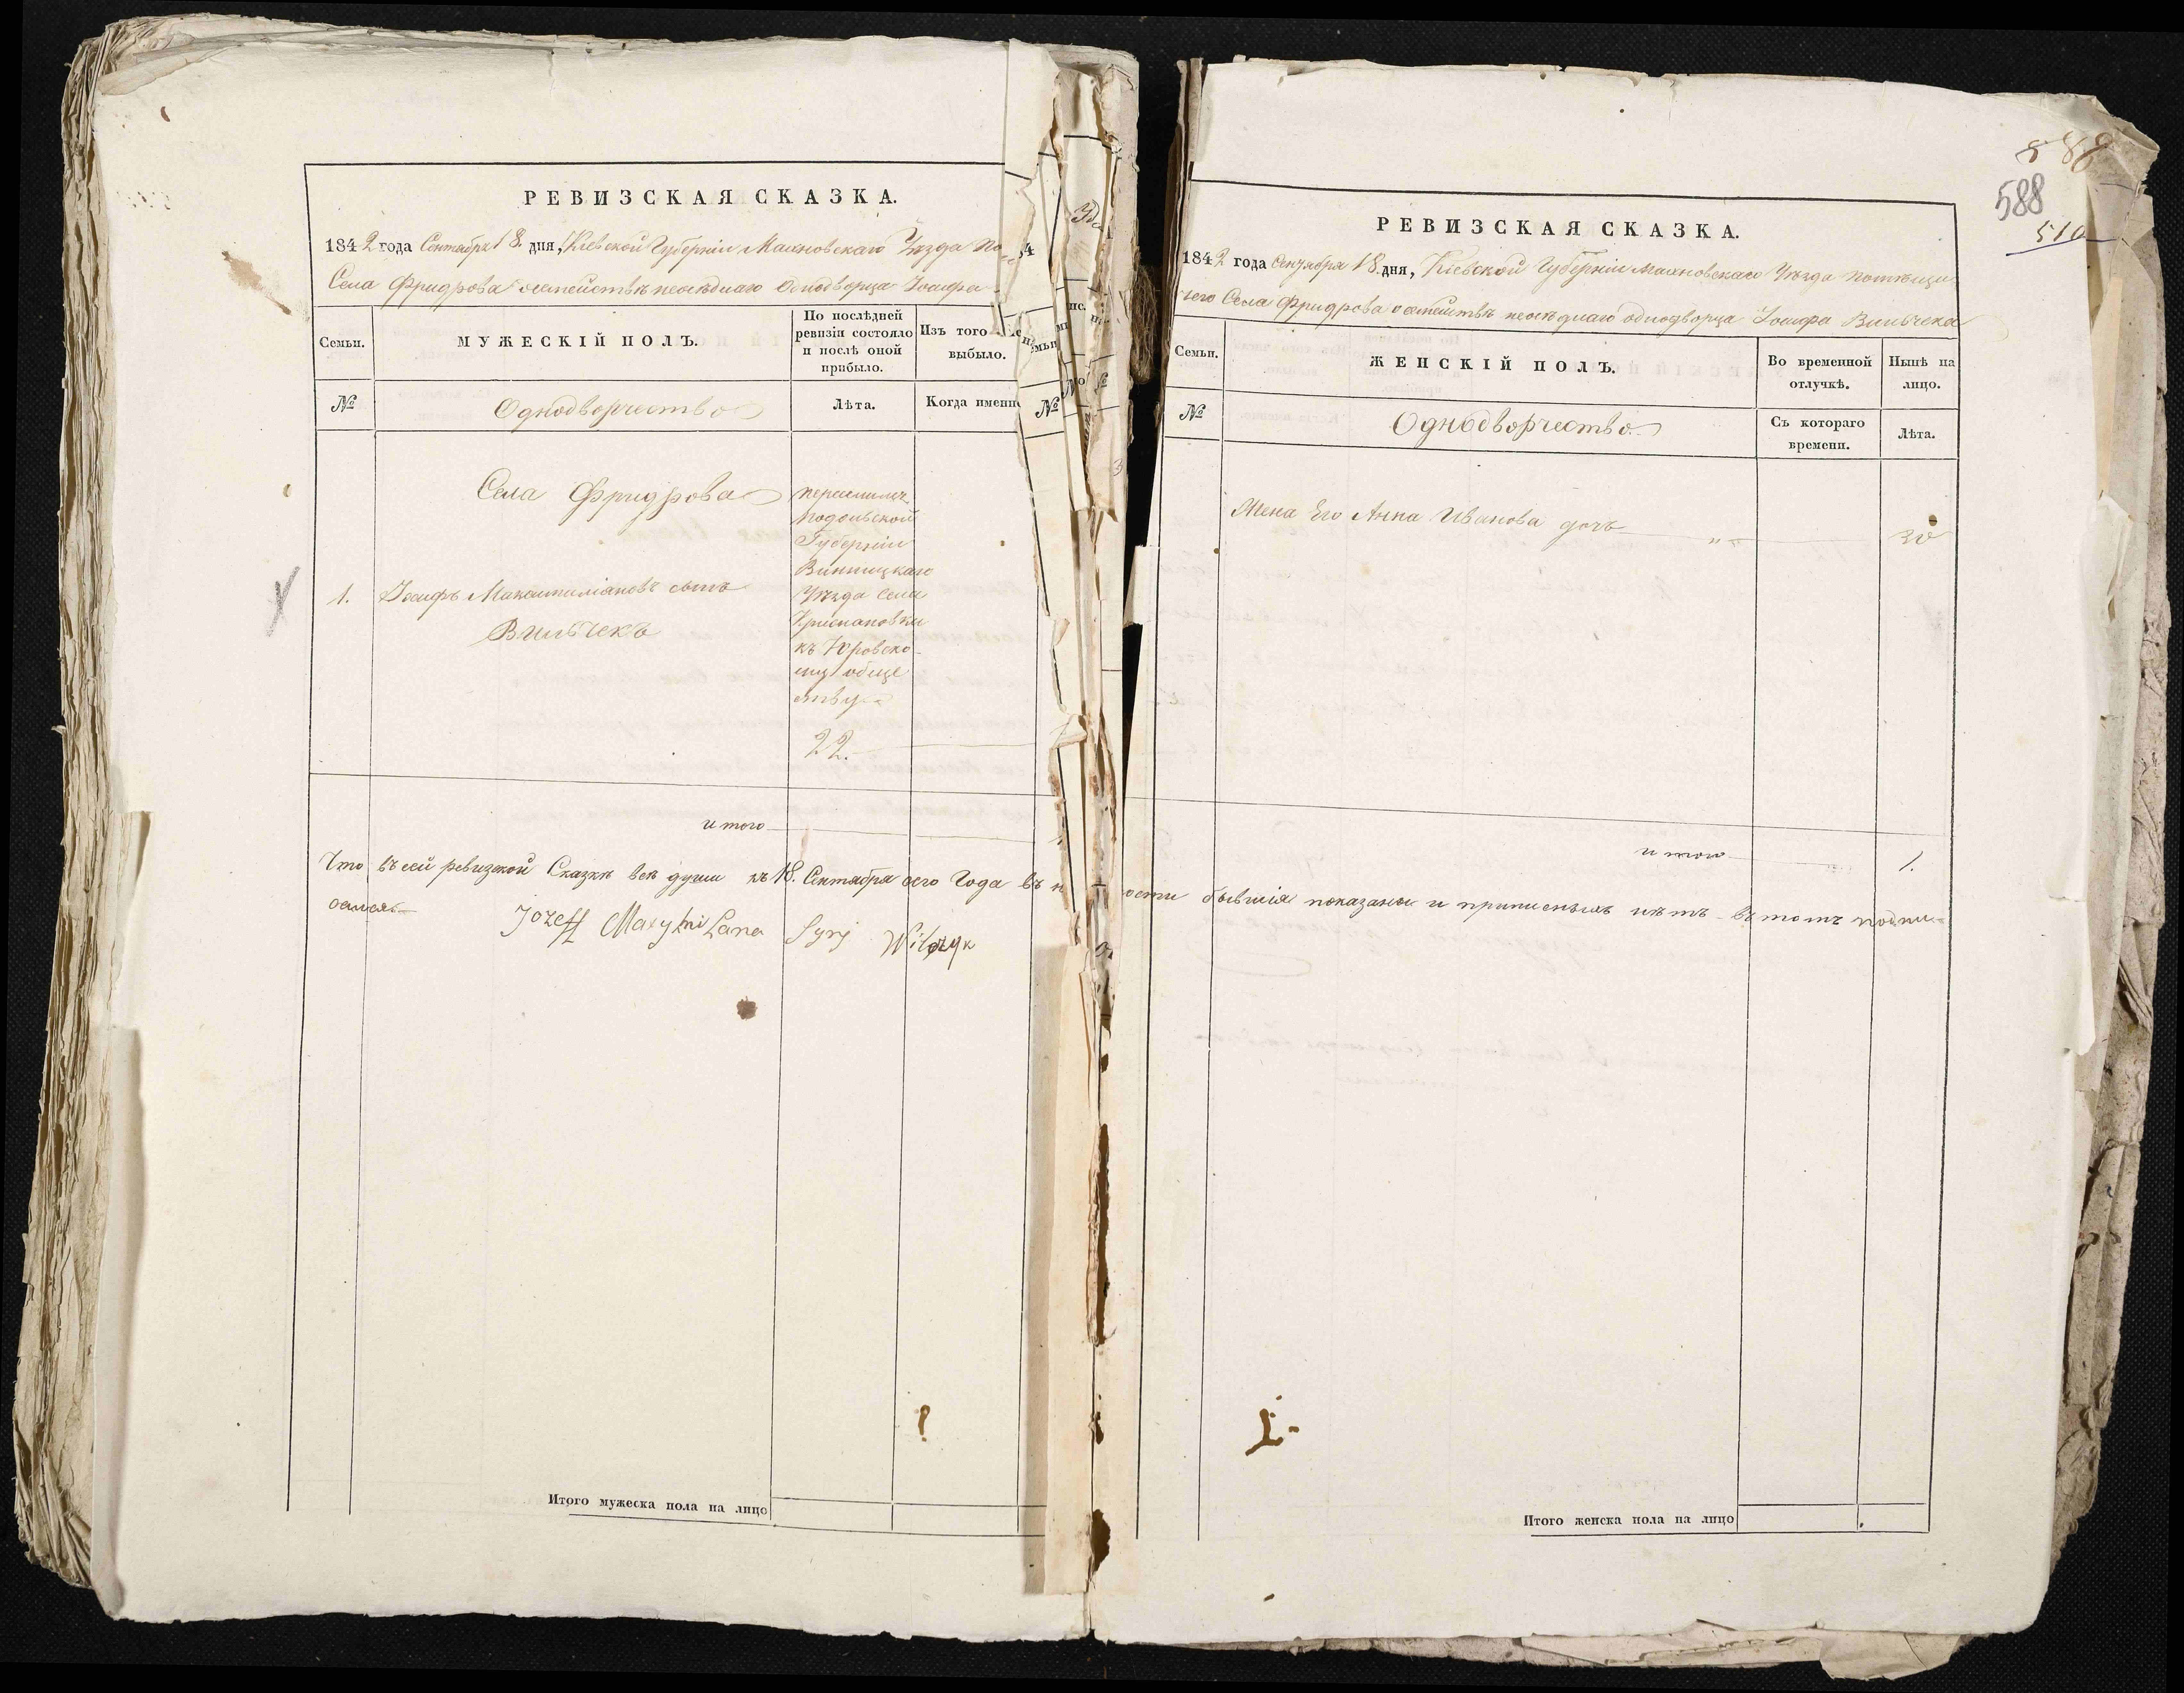 РЕВИЗСКАЯ СКАЗКА.
1842 года Сентября 18. дня, Кіевской Губерніи Махновскаго Уѣзда По
Села Фридрова о семействѣ неосѣдлаго Однодворца Іосифа
Семьи.
МУЖЕСКІЙ ПОЛЪ.
По послѣдней ревизіи состояло и послѣ оной прибыло.
Изъ того выбыло.
№
Однодворчество
Лѣта.
Когда именн
Села Фридрова
перечислился
Подольской
Губерніи
Винницкаго
Уѣзда Села
къ Юровско-
му обще
ству
1. Іосифъ Максимиліановъ сынъ
Вильчекъ
22.
итого
Что въ сей ревизской Сказкѣ всѣ души къ 18. Сентября сего Года въ н
Jozeff Maxymiliana Syny Wilczyk
Итого мужеска пола на лицо
888
588
510
РЕВИЗСКАЯ СКАЗКА.
1842 года Сентября 18. дня, Кіевской Губерніи Махновскаго Уѣзда помѣщи
чего Села Фридрова о семействѣ неосѣдлаго однодворца Іосифа Вильчека
Семьи.
ЖЕНСКІЙ ПОЛЪ.
Во временной отлучкѣ.
Нынѣ на лицо.
№
Однодворчество.
Съ котораго времени.
Лѣта.
Жена Его Анна Иванова дочь " "
итого 1.
ости бывшія показаны и прописныхъ нѣтъ въ томъ подпи-
сался
Итого женска пола на лицо